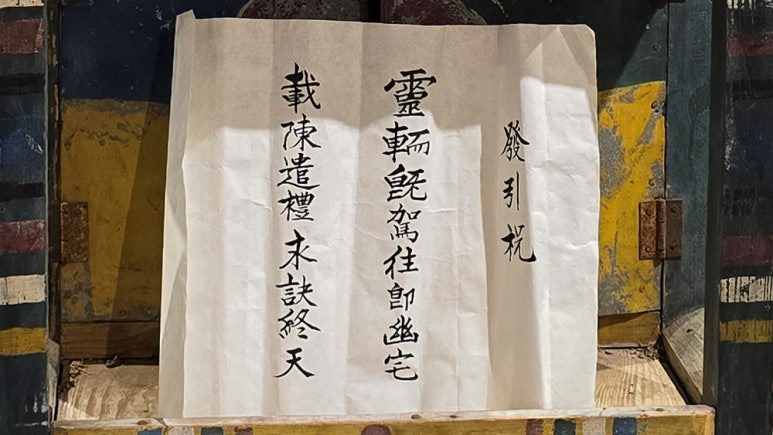 發引祝
靈輀旣駕往卽幽宅
載陳遣禮永訣終天